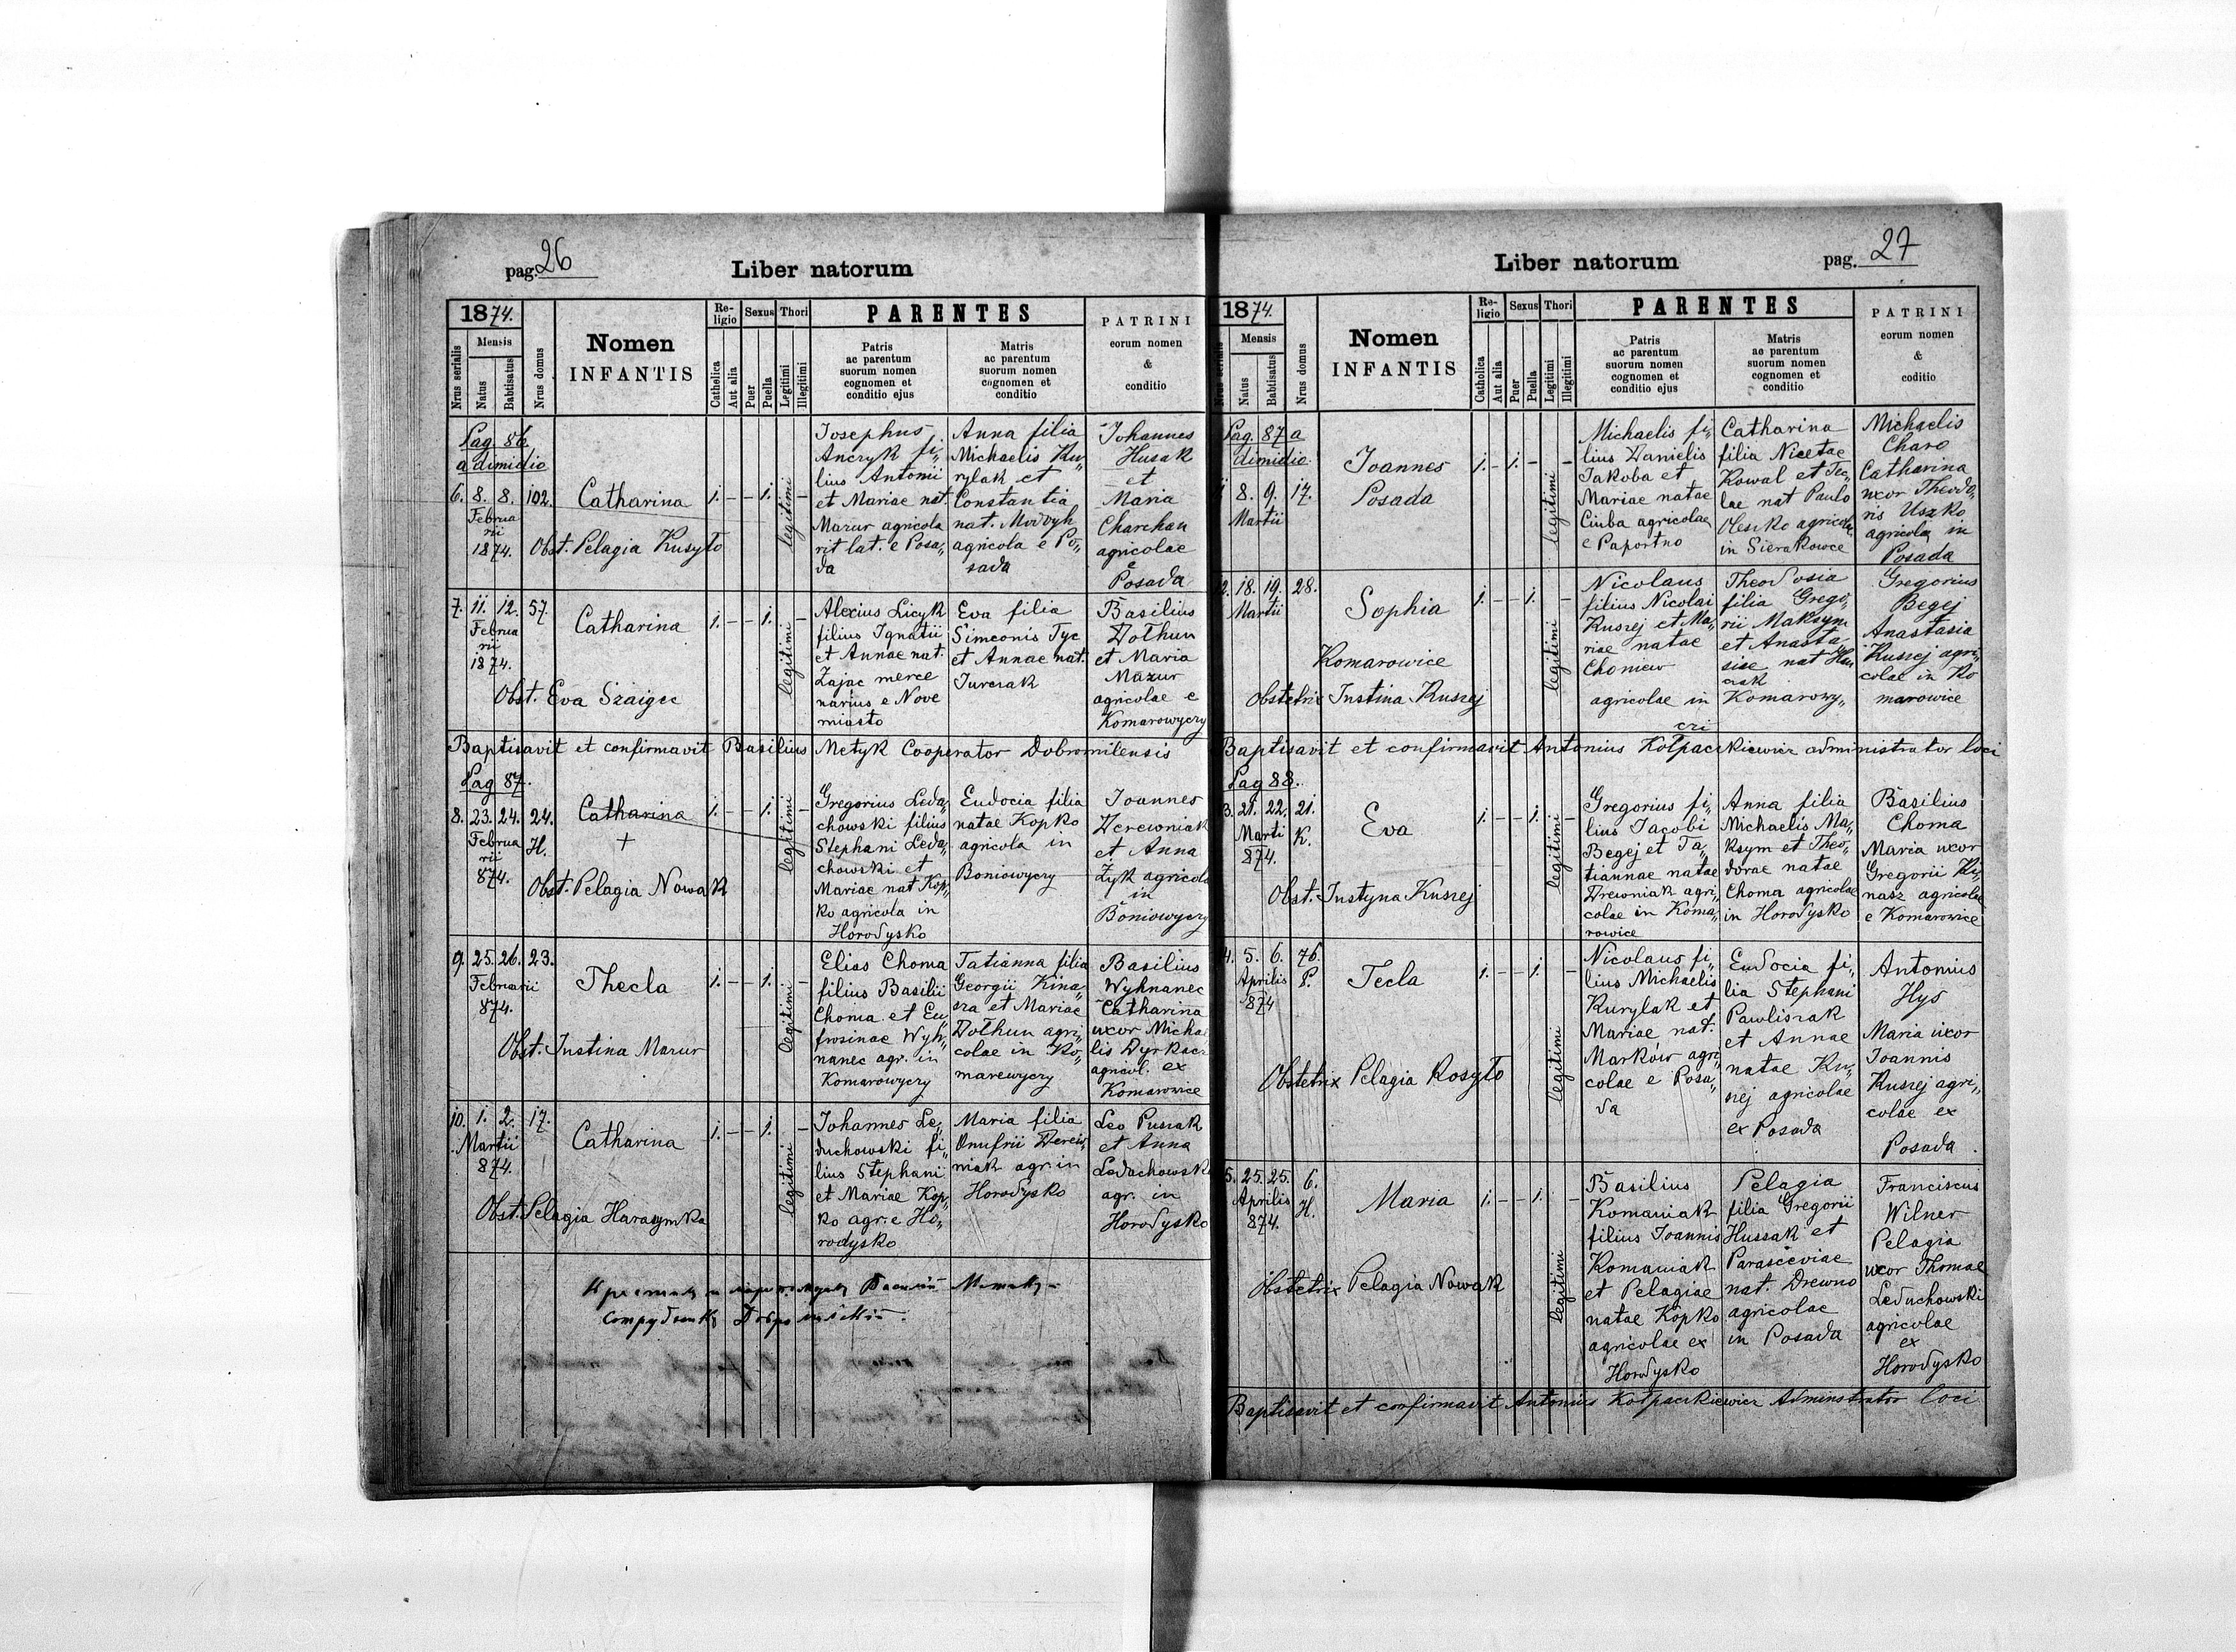 pag. 26
Liber natorum
1874.
Mensis
Nrus serialis
Natus
Babtisatus
Nrus domus
Nomen
INFANTIS
Re-
ligio
Catholica
Aut alia
Sexus
Puer
Puella
Thori
Legitimi
Illegitimi
PARENTES
Patris
ac parentum
suorum nomen
cognomen et
conditio ejus
Matris
ac parentum
suorum nomen
cognomen et
conditio
PATRINI
eorum nomen
&
conditio
Pag. 86
a dimidio
6. 8. 8. 102.
Februa
rii
1874.
Catharina
Obst. Pelagia Kusyło
1. – – 1. legitimi –
Josephus
Ancryk fi„
lius Antonii
et Mariae nat
Mazur agricola
rit lat. e Posa„
da
Anna filia
Michaelis Ku„
rylak et
Constantia
nat.
agricola e Po„
sada
Johannes
Husak
et
Maria
Charchan
agricolae
e
Posada
7. 11. 12. 57.
Februa
rii
1874.
Catharina
Obst. Eva Szaigec
1. – – 1. legitimi –
Alexius Licyk
filius Ignatii
et Annae nat.
Zajac merce
narius e Nove
miasto
Eva filia
Simeonis Tyc
et Annae nat.
Jurczak
Basilius
Dołhun
et Maria
Mazur
agricolae e
Komarowyczy
Baptisavit et confirmavit Basilius Metyk Cooperator Dobromilensis
Pag 87.
8. 23. 24. 24.
Februa H.
rii
874.
Catharina
+
Obst. Pelagia Nowak
1. – – 1. legitimi –
Gregorius Leda„
chowski filius
Stephani Leda„
chowski et
Mariae nat Kop„
ko agricola in
Horodysko
Eudocia filia
natae Kopko
agricola in
Boniowyczy
Joannes
Derewniak
et Anna
Żyk agricola
in
Boniowyczy
9. 25. 26. 23.
Februarii
874.
Thecla
Obst. Justina Mazur
1. – – 1. legitimi –
Elias Choma
filius Basilii
Choma et Eu„
frosinae Wyh„
nanec agr. in
Komarowyczy
Tatianna filia
Georgii Kina„
sza et Mariae
Dołhun agri„
colae in Ko„
marewyczy
Basilius
Wyhnanec
Catharina
uxor Michae
lis Dyrkacz
agricol. ex
Komarowice
10. 1. 2. 17.
Martii
874.
Catharina
Obst. Pelagia Haraymka
1. – – 1. legitimi –
Johannes Le„
duchowski fi„
lius Stephani
et Mariae Kop„
ko agr. e Ho„
rodysko
Maria filia
Onufrii Derew„
niak agr. in
Horodysko
Leo Puszak
et Anna
Leduchowski
agr. in
Horodysko
Василій
pag. 27
Liber natorum
1874.
Mensis
Nrus serialis
Natus
Babtisatus
Nrus domus
Nomen
INFANTIS
Re-
ligio
Catholica
Aut alia
Sexus
Puer
Puella
Thori
Legitimi
Illegitimi
PARENTES
Patris
ac parentum
suorum nomen
cognomen et
conditio ejus
Matris
ac parentum
suorum nomen
cognomen et
conditio
PATRINI
eorum nomen
&
coditio
Pag. 87 a
dimidio.
1 8. 9. 17.
Martii
Joannes
Posada
1. – 1. – legitimi –
Michaelis fi„
lius Danielis
Jakoba et
Mariae natae
Ciuba agricolae
e Paportno
Catharina
filia Nicetae
Kowal et Tec„
lae nat Paulo
Oleszko agricolae
in Sierakowce
Michaelis
Charo
Catharina
uxor Theodo„
ris Uszko
agricola in
Posada
2. 18. 19. 28.
Martii
Sophia
Komarowice
Obstetrix Justina Kuszej
1. – – 1. legitimi –
Nicolaus
filius Nicolai
Kuszej et Ma„
riae natae
Choniew
agricolae in
Theodosia
filia Grego„
rii Maksym
et Anasta„
siae nat
Komarowy„
czi
Gregorius
Begej
Anastasia
Kuszej agri„
colae in Ko
marowice
Baptisavit et confirmavit Antonius Kołpaczkiewicz administrator loci
Pag 88.
3. 21. 22. 21.
Marti K.
874.
Eva
Obst. Justyna Kuszej
1. – – 1. legitimi –
Gregorius fi„
lius Jacobi
Begej et Ta„
tiannae natae
Drewniak agri„
colae in Koma„
rowice
Anna filia
Michaelis Ma„
ksym et Theo„
dorae natae
Choma agricolae
in Horodysko
Basilius
Choma
Maria uxor
Gregorii Ky„
nasz agricolae
e Komarowice
4. 5. 6. 76.
Aprilis P.
874
Tecla
Obstetrix Pelagia Kosyło
1. – – 1. legitimi –
Nicolaus fi„
lius Michaelis
Kurylak et
Mariae nat.
Marków agri
colae e Posa„
da
Eudocia fi„
lia Stephani
Pawliszak
et Annae
natae Ku„
szej agricolae
ex Posada
Antonius
Hys
Maria uxor
Joannis
Kuszej agri„
colae ex
Posada
5. 25. 25. 6.
Aprilis H.
874.
Maria
Obstetrix Pelagia Nowak
1. – – 1. legitimi –
Basilius
Komaniak
filius Joannis
Komaniak
et Pelagiae
natae Kopko
agricolae ex
Horodysko
Pelagia
filia Gregorii
Hussak et
Parasceviae
nat. Drewno
agricolae
in Posada
Franciscus
Wilner
Pelagia
uxor Thomae
Leduchowski
agricolae
ex
Horodysko
Baptisavit et confirmavit Antonius Kołpaczkiewicz Adminstrator loci